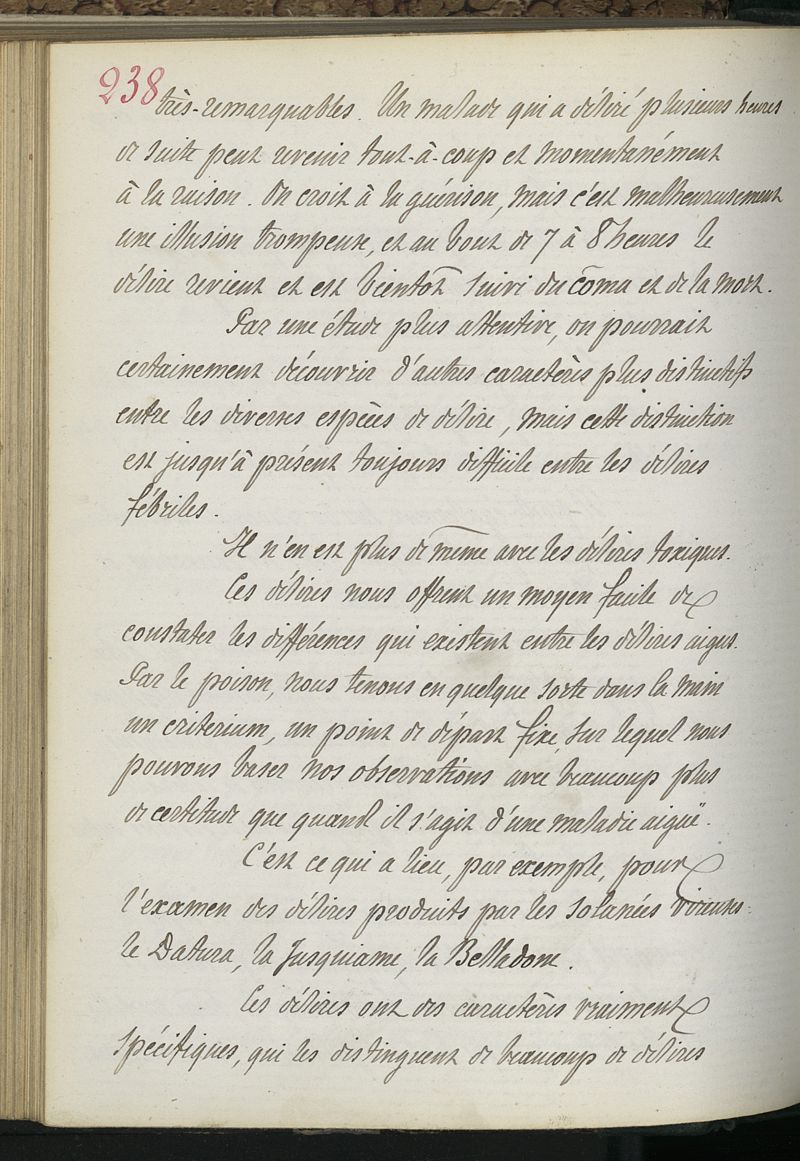 238
très-remarquables. Un malade qui a déliré plusieurs heures
de suite peut revenir tout-à-coup et momentanément
à la raison. On croit à la guérison, mais c'est malheureusement
une illusion trompeuse, et au bout de 7 à 8 heures le
délire revient et est bientôt suivi du coma et de la mort.
Par une étude plus attentive, on pourrait
certainement découvrir d'autres caractères plus distinctifs
entre les diverses espèces de délire, mais cette distinction
est jusqu'à présent toujours difficile entre les délires
fébriles.
Il n'en est plus de même avec les délires toxiques.
Ces délires nous offrent un moyen facile de
constater les différences qui existent entre les délires aigus.
Par le poison, nous tenons en quelque sorte dans la main
un criterium, un point de départ fixe, sur lequel nous
pouvons baser nos observations avec beaucoup plus
de certitude que quand il s'agit d'une maladie aiguë.
C'est ce qui a lieu, par exemple, pour
l'examen des délires produits par les solanées vireuses:
le Datura, la Jusquiame, la Belladone.
Ces délires ont des caractères vraiment
spécifiques, qui les distinguent de beaucoup de délires